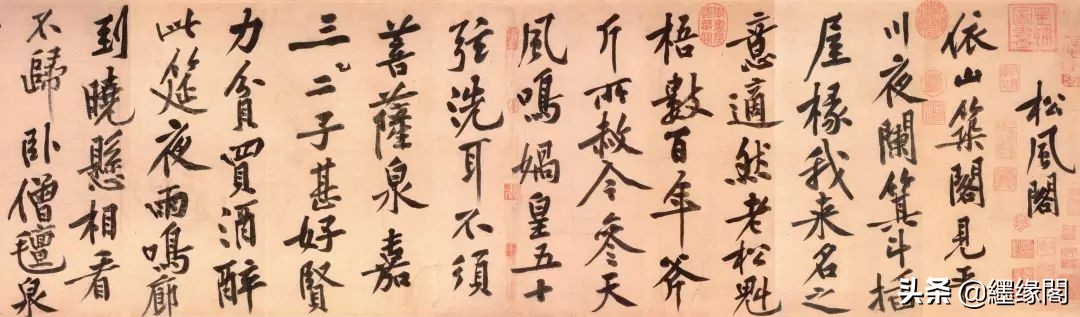 松風閣
依山築閣見平
川夜闌箕斗插
屋椽我来名之
意適然老松魁
梧數百年斧
斤所赦今參天
風鳴媧皇五十
弦洗耳不須
菩薩泉嘉
三二子甚好賢
力貧買酒醉
此筵夜雨鳴廊
到曉懸相看
不歸卧僧氊泉
头条 @缘閣